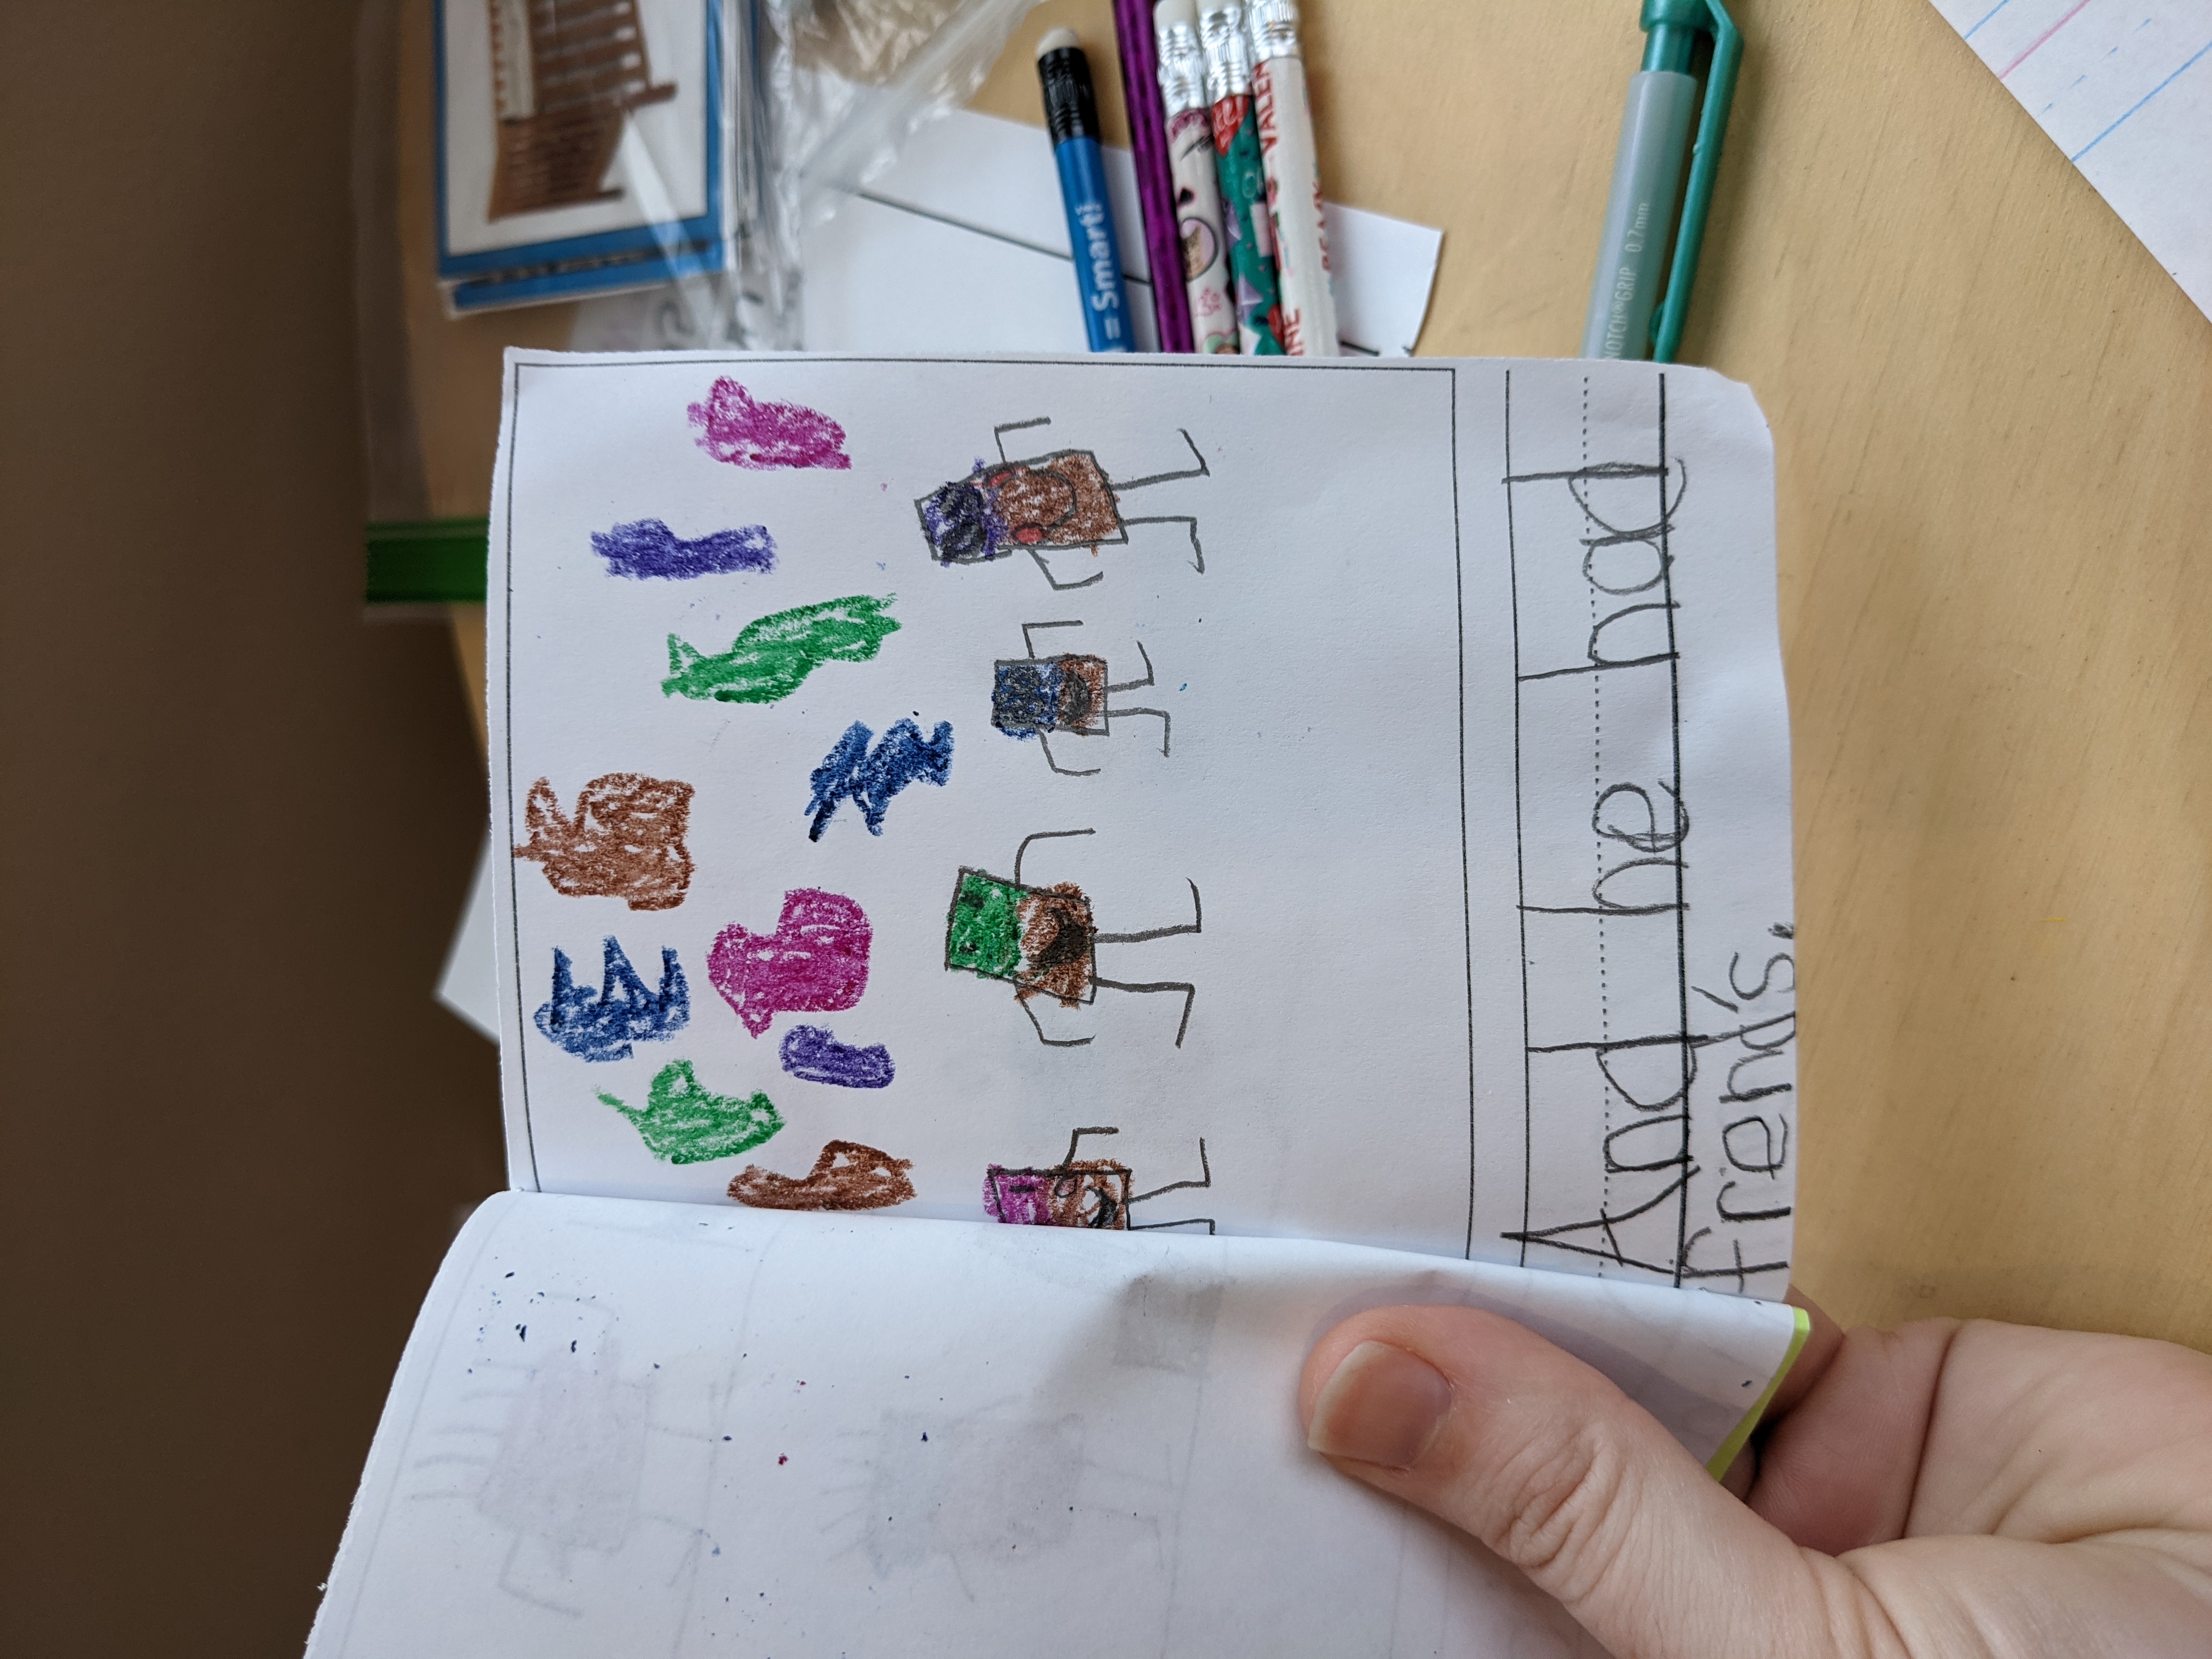 And he had
frend's.
= Smart!
VALEN
INE
NOTCH®GRIP 0.7mm